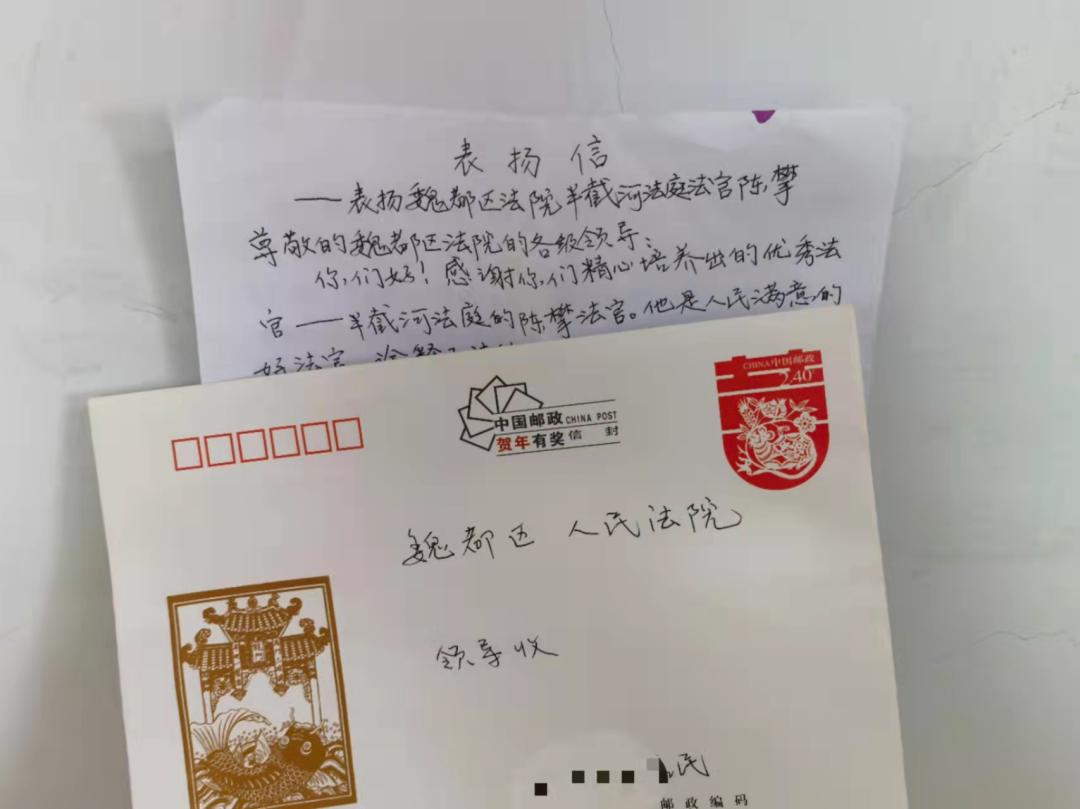 表扬信
——表扬魏都区法院半截河法庭法官陈攀
尊敬的魏都区法院的各级领导:
你们好！感谢你们精心培养出的优秀法
官——半截河法庭的陈攀法官。他是人民满意的
好法官
CHINA中国邮政
2.40
中国邮政 CHINA POST
贺年有奖信封
魏都区人民法院
领导收
民
邮政编码